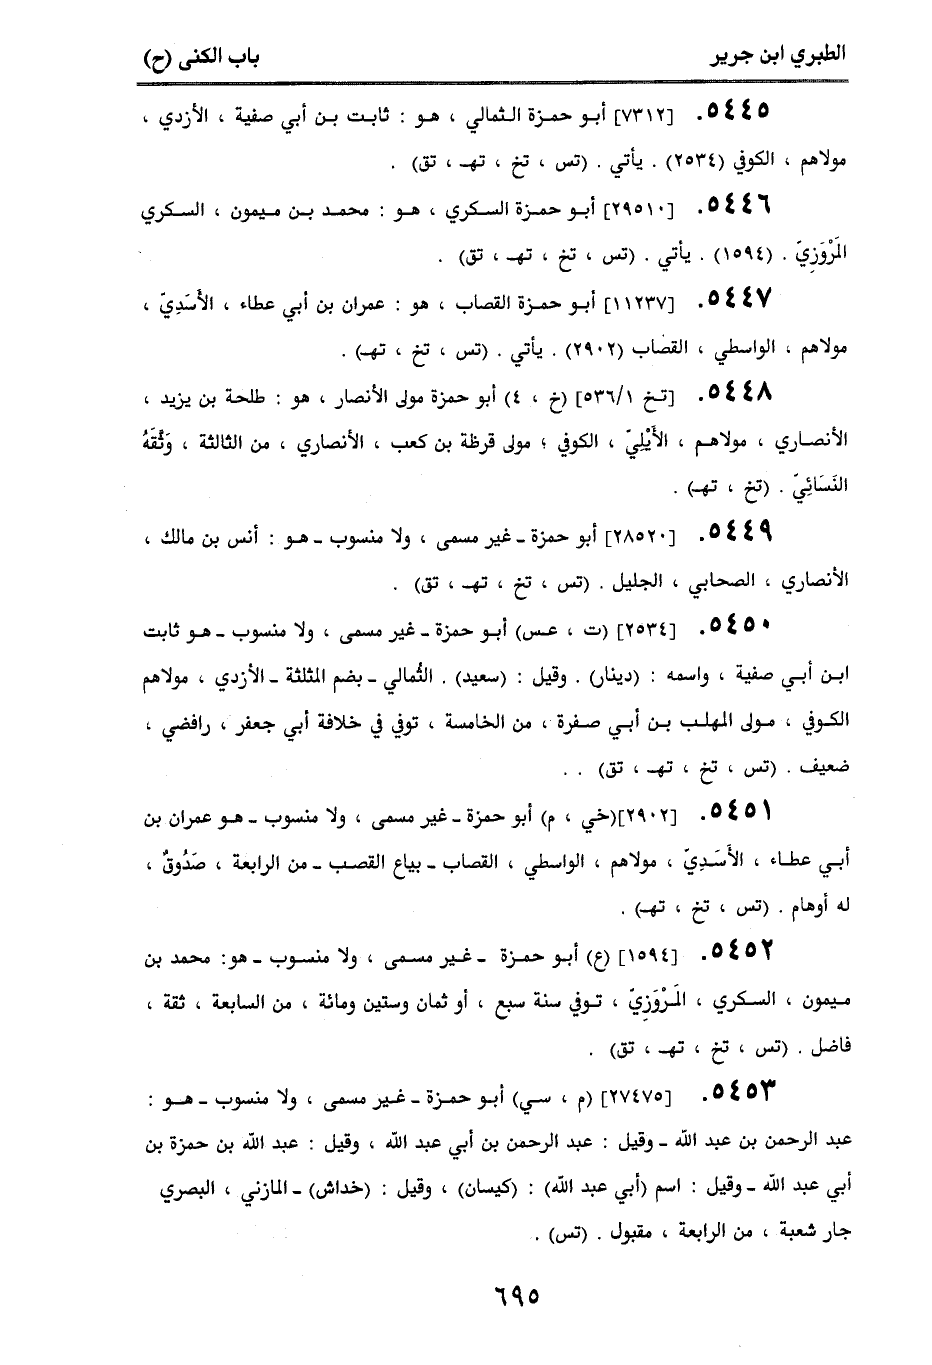 الطبري ابن جرير
باب الكنى (ح)
٥٤٤٥. [٧٣١٢] أبو حمزة الثمالي ، هو : ثابت بن أبي صفية ، الأزدي ،
مولاهم ، الكوفي (٢٥٣٤) . يأتي . (تس ، تخ ، تهـ ، تق) .
٥٤٤٦. [٢٩٥١٠] أبو حمزة السكري ، هو : محمد بن ميمون ، السكري
المَرْوَزِيّ . (١٥٩٤) . يأتي . (تس ، تخ ، تهـ ، تق) .
٥٤٤٧. [١١٢٣٧] أبو حمزة القصاب ، هو : عمران بن أبي عطاء ، الأَسَدِيّ ،
مولاهم ، الواسطي ، القصاب (٢٩٠٢) . يأتي . (تس ، تخ ، تهـ) .
٥٤٤٨. [تخ ٥٣٦/١] (خ ، ٤) أبو حمزة مولى الأنصار ، هو : طلحة بن يزيد ،
الأنصاري ، مولاهم ، الأَيْلِيّ ، الكوفي ؛ مولى قرظة بن كعب ، الأنصاري ، من الثالثة ، وَثَّقَهُ
النَسَائِيّ . (تخ ، تهـ) .
٥٤٤٩. [٢٨٥٢٠] أبو حمزة ـ غير مسمى ، ولا منسوب ـ هو : أنس بن مالك ،
الأنصاري ، الصحابي ، الجليل . (تس ، تخ ، تهـ ، تق) .
٥٤٥٠. [٢٥٣٤] (ت ، عس) أبو حمزة ـ غير مسمى ، ولا منسوب ـ هو ثابت
ابن أبي صفية ، واسمه : (دينار) . وقيل : (سعيد) . الثُمالي ـ بضم المثلثة ـ الأزدي ، مولاهم
الكوفي ، مولى المهلب بن أبي صفرة ، من الخامسة ، توفي في خلافة أبي جعفر ، رافضي ،
ضعيف . (تس ، تخ ، تهـ ، تق) . .
٥٤٥١. [٢٩٠٢](خي ، م) أبو حمزة ـ غير مسمى ، ولا منسوب ـ هو عمران بن
أبي عطاء ، الأَسَدِيّ ، مولاهم ، الواسطي ، القصاب ـ بياع القصب ـ من الرابعة ، صَدُوقٌ ،
له أوهام . (تس ، تخ ، تهـ) .
٥٤٥٢. [١٥٩٤] (ع) أبو حمزة ـ غير مسمى ، ولا منسوب ـ هو: محمد بن
ميمون ، السكري ، المَرْوَزِيّ ، توفي سنة سبع ، أو ثمان وستين ومائة ، من السابعة ، ثقة ،
فاضل . (تس ، تخ ، تهـ ، تق) .
٥٤٥٣. [٢٧٤٧٥] (م ، سي) أبو حمزة ـ غير مسمى ، ولا منسوب ـ هو :
عبد الرحمن بن عبد الله ـ وقيل : عبد الرحمن بن أبي عبد الله ، وقيل : عبد الله بن حمزة بن
أبي عبد الله ـ وقيل : اسم (أبي عبد الله) : (كيسان) ، وقيل : (خداش) ـ المازني ، البصري
جار شعبة ، من الرابعة ، مقبول . (تس) .
٦٩٥